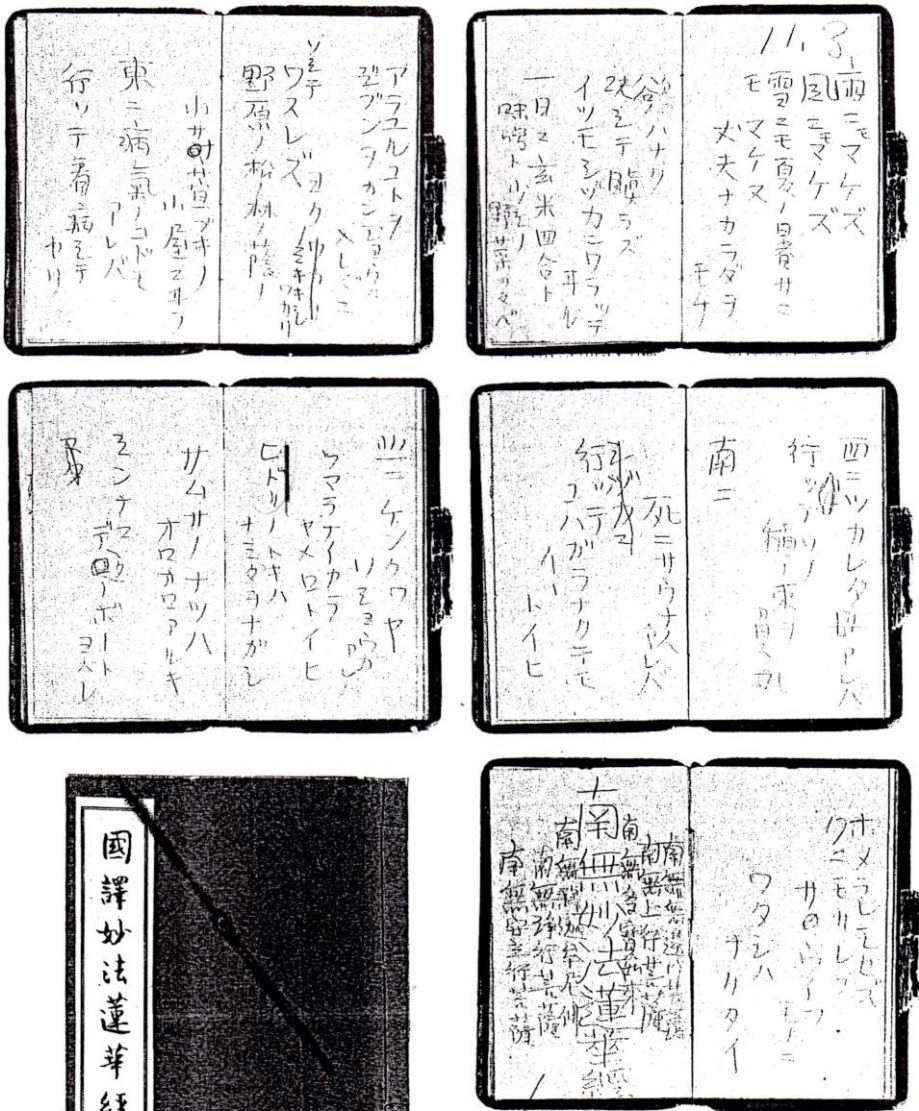 11.3.
雨ニモマケズ
風ニモマケズ
雪ニモ夏ノ暑サニ
モマケヌ
丈夫ナカラダヲ
モチ
慾ハナク
決シテ瞋ラズ
イツモシヅカニワラッテ
ヰル
一日ニ玄米四合ト
味噌ト少シノ
野菜ヲタベ
アラユルコトヲ
ジブンヲカンジョウニ
入レズニ
ヨクミキキシ
ワカリ
ソシテ
ワスレズ
野原ノ松ノ林ノ蔭ノ
小サナ萓ブキノ
小屋ニヰテ
東ニ病氣ノコドモ
アレバ
行ッテ看病シテ
ヤリ
西ニツカレタ母アレバ
行ッテソノ
稲ノ束ヲ
負ヒ
南ニ
死ニサウナ人アレバ
行ッテ
コハガラナクテモ
イヽトイヒ
北ニケンクヮヤ
ソショウガ
アレバ
ツマラナイカラ
ヤメロトイヒ
ヒドリノトキハ
ナミダヲナガシ
サムサノナツハ
オロオロアルキ
ミンナニ
デクノボート
ヨバレ
ホメラレモセズ
クニモサレズ
サウイフ
モノニ
ワタシハ
ナリタイ
南無無邊行菩薩
南無上行菩薩
南無多寶如来
南無妙法蓮華経
南無釈迦牟尼佛
南無浄行菩薩
南無安立行菩薩
國譯妙法蓮華経